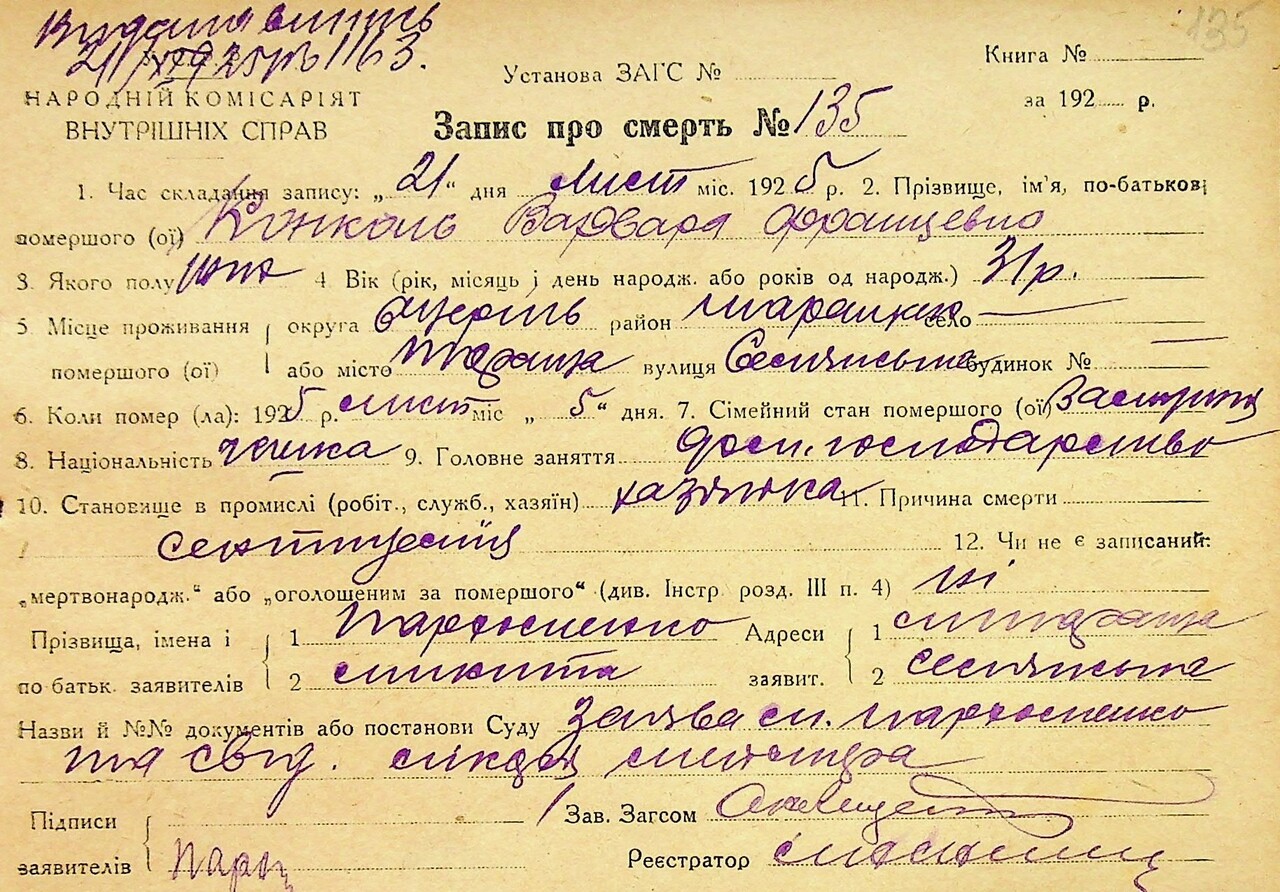 Видана випись
21/XI 1925 р № 1163.
135
Книга №
Установа ЗАГС №
НАРОДНІЙ КОМІСАРІЯТ
за 192 р.
ВНУТРІШНІХ СПРАВ
Запис про смерть № 135
1. Час складання запису: „21“ дня лист міс. 1925 р. 2. Прізвище, ім'я, по-батькові
помершого (ої) Конколь Варвара Францевна
3. Якого полу жін 4 Вік (рік, місяць і день народж. або років од народж.) 31 р.
5. Місце проживання округа район село
помершого (ої) або місто Тараща вулиця будинок №
6. Коли помер (ла): 1925 р. лист міс „5“ дня. 7. Сімейний стан помершого (ої)
8. Національність чешка 9. Головне заняття господарство
10. Становище в промислі (робіт., служб., хазяїн) хазяйка 11. Причина смерти
12. Чи не є записаний:
„мертвонародж.“ або „оголошеним за помершого“ (див. Інстр розд. III п. 4) ні
Прізвища, імена і 1 Пархоменко Адреси 1
по батьк. заявителів 2 Микита заявит. 2
Назви й №№ документів або постанови Суду Заява Пархоменко
та свід.
Підписи Зав. Загсом
заявителів Парх Реєстратор